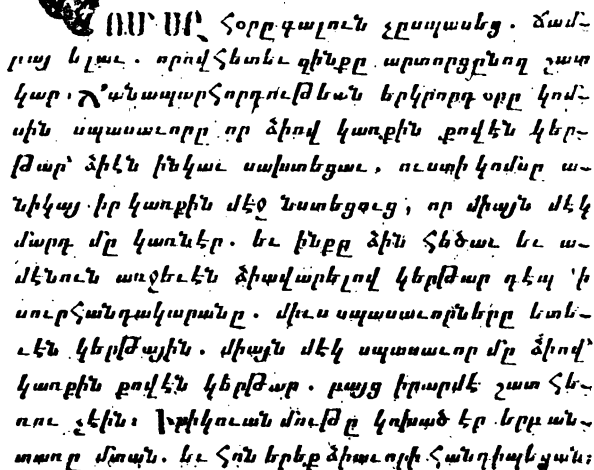 ՌՄՍԸ հօրը գալուն չըսպասեց. ճամ֊
բայ ելաւ. որովհետեւ զինքը արտորցընող շատ
կար. Ճանապարհորդութեան երկրորդ օրը կոմ֊
սին սպասաւորը որ ձիով կառքին քովէն կեր֊
թար՝ ձիէն ինկաւ սախտեցաւ, ուստի կոմսը ա֊
նիկայ իր կառքին մէջ նստեցուց, որ միայն մէկ
մարդ մը կառնէր. եւ ինքը ձին հեծաւ եւ ա֊
մէնուն առջեւէն ձիավարելով կերթար դէպ ՚ի
սուրհանդակարանը. միւս սպասաւորները ետե֊
ւէն կերթային. միայն մէկ սպասաւոր մը ձիով՝
կառքին քովէն կերթար. բայց իրարմէ շատ հե֊
ռու չէին։ Իրիկուան մութը կոխած էր երբ ան֊
տառը մտան. եւ հոն երեք ձիաւորի հանդիպեցան։